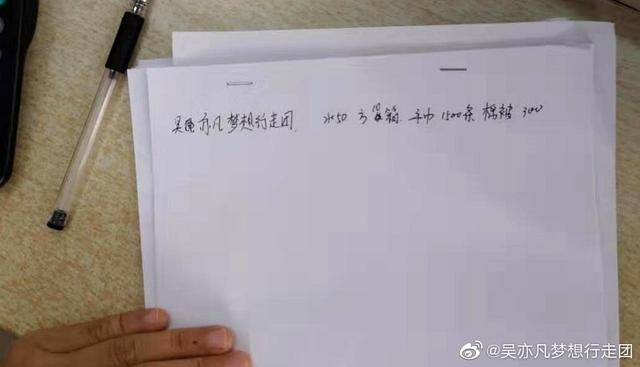 吴亦凡梦想行走团 水50 方 箱 毛巾 1500条 棉被 300
@吴亦凡梦想行走团